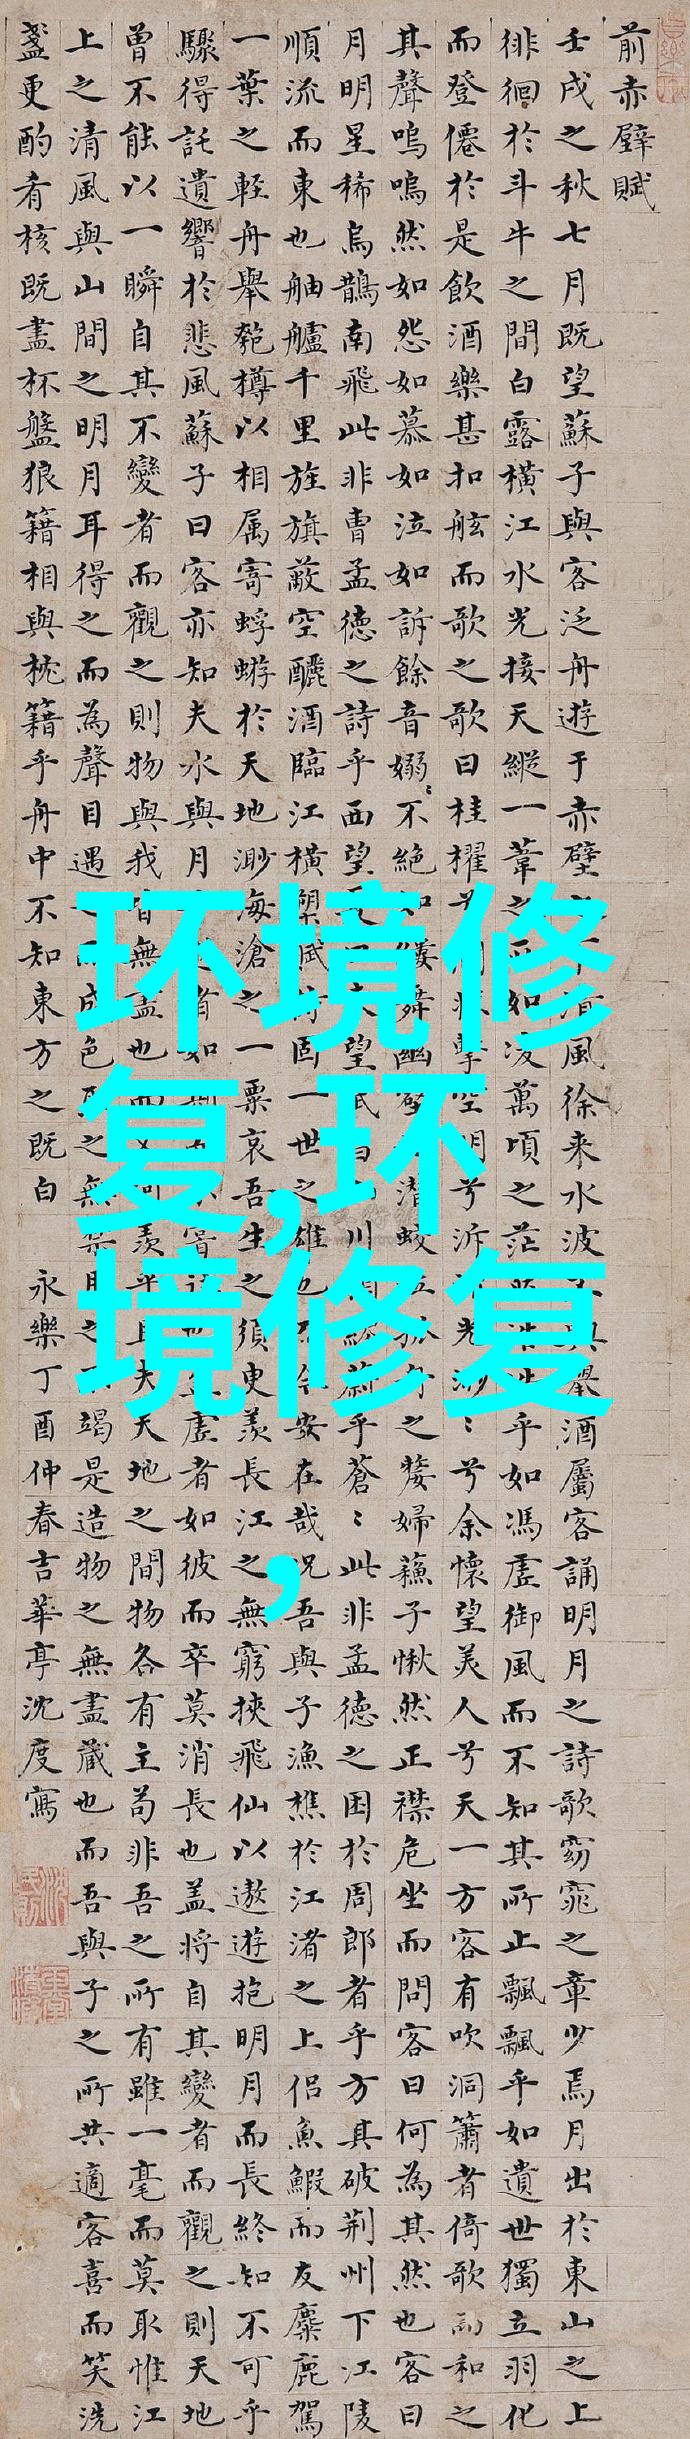 前赤壁賦
壬戌之秋七月既望蘇子與客泛舟遊于赤壁清風徐来水波興舉酒屬客誦明月之詩歌窈窕之章少焉月出於東山之上
徘徊於斗牛之間白露橫江水光接天縱一葦之所如凌萬頃之茫乎如馮虚御風而不知其所止飄飄乎如遺世獨立羽化
而登僊於是飲酒樂甚扣舷而歌之歌曰桂櫂兮擊空明兮泝光渺〻兮余懷望美人兮天一方客有吹洞簫者倚歌而和之
其聲嗚嗚然如怨如慕如泣如訴餘音嫋〻不絶如縷舞幽壑潜蛟泣孤舟之嫠婦蘓子愀然正襟危坐而問客曰何為其然也客曰
月明星稀烏鵲南飛此非曹孟德之詩乎西望東望武川鬱乎蒼〻此非孟德之困於周郎者乎方其破荆州下江陵
順流而東也舳艫千里旌旗蔽空釃酒臨江橫槊賦詩固一世之雄也今安在哉况吾與子漁樵於江渚之上侣魚鰕而友麋鹿駕
一葉之輕舟舉匏樽以相属寄蜉蝣於天地渺海滄之一粟哀吾生之須臾羨長江之無窮挾飛仙以遨遊抱明月而長終知不可乎
驟得託遺響於悲風蘇子曰客亦知夫水與月者如嘗往也虚者如彼而卒莫消長也盖将自其變者而觀之則天地
曽不能以一瞬自其不變者而觀之則物與我皆無盡也而又何羨乎且夫天地之間物各有主苟非吾之所有雖一毫而莫取惟江
上之清風與山間之明月耳得之而為聲目遇而成色取之無禁用之竭是造物之無盡藏也而吾與子之所共適客喜而笑洗
盞更酌肴核既盡杯盤狼籍相與枕籍乎舟中不知東方之既白 永樂丁酉仲春吉華亭沈度寫
环境修
复,环
境修复
,